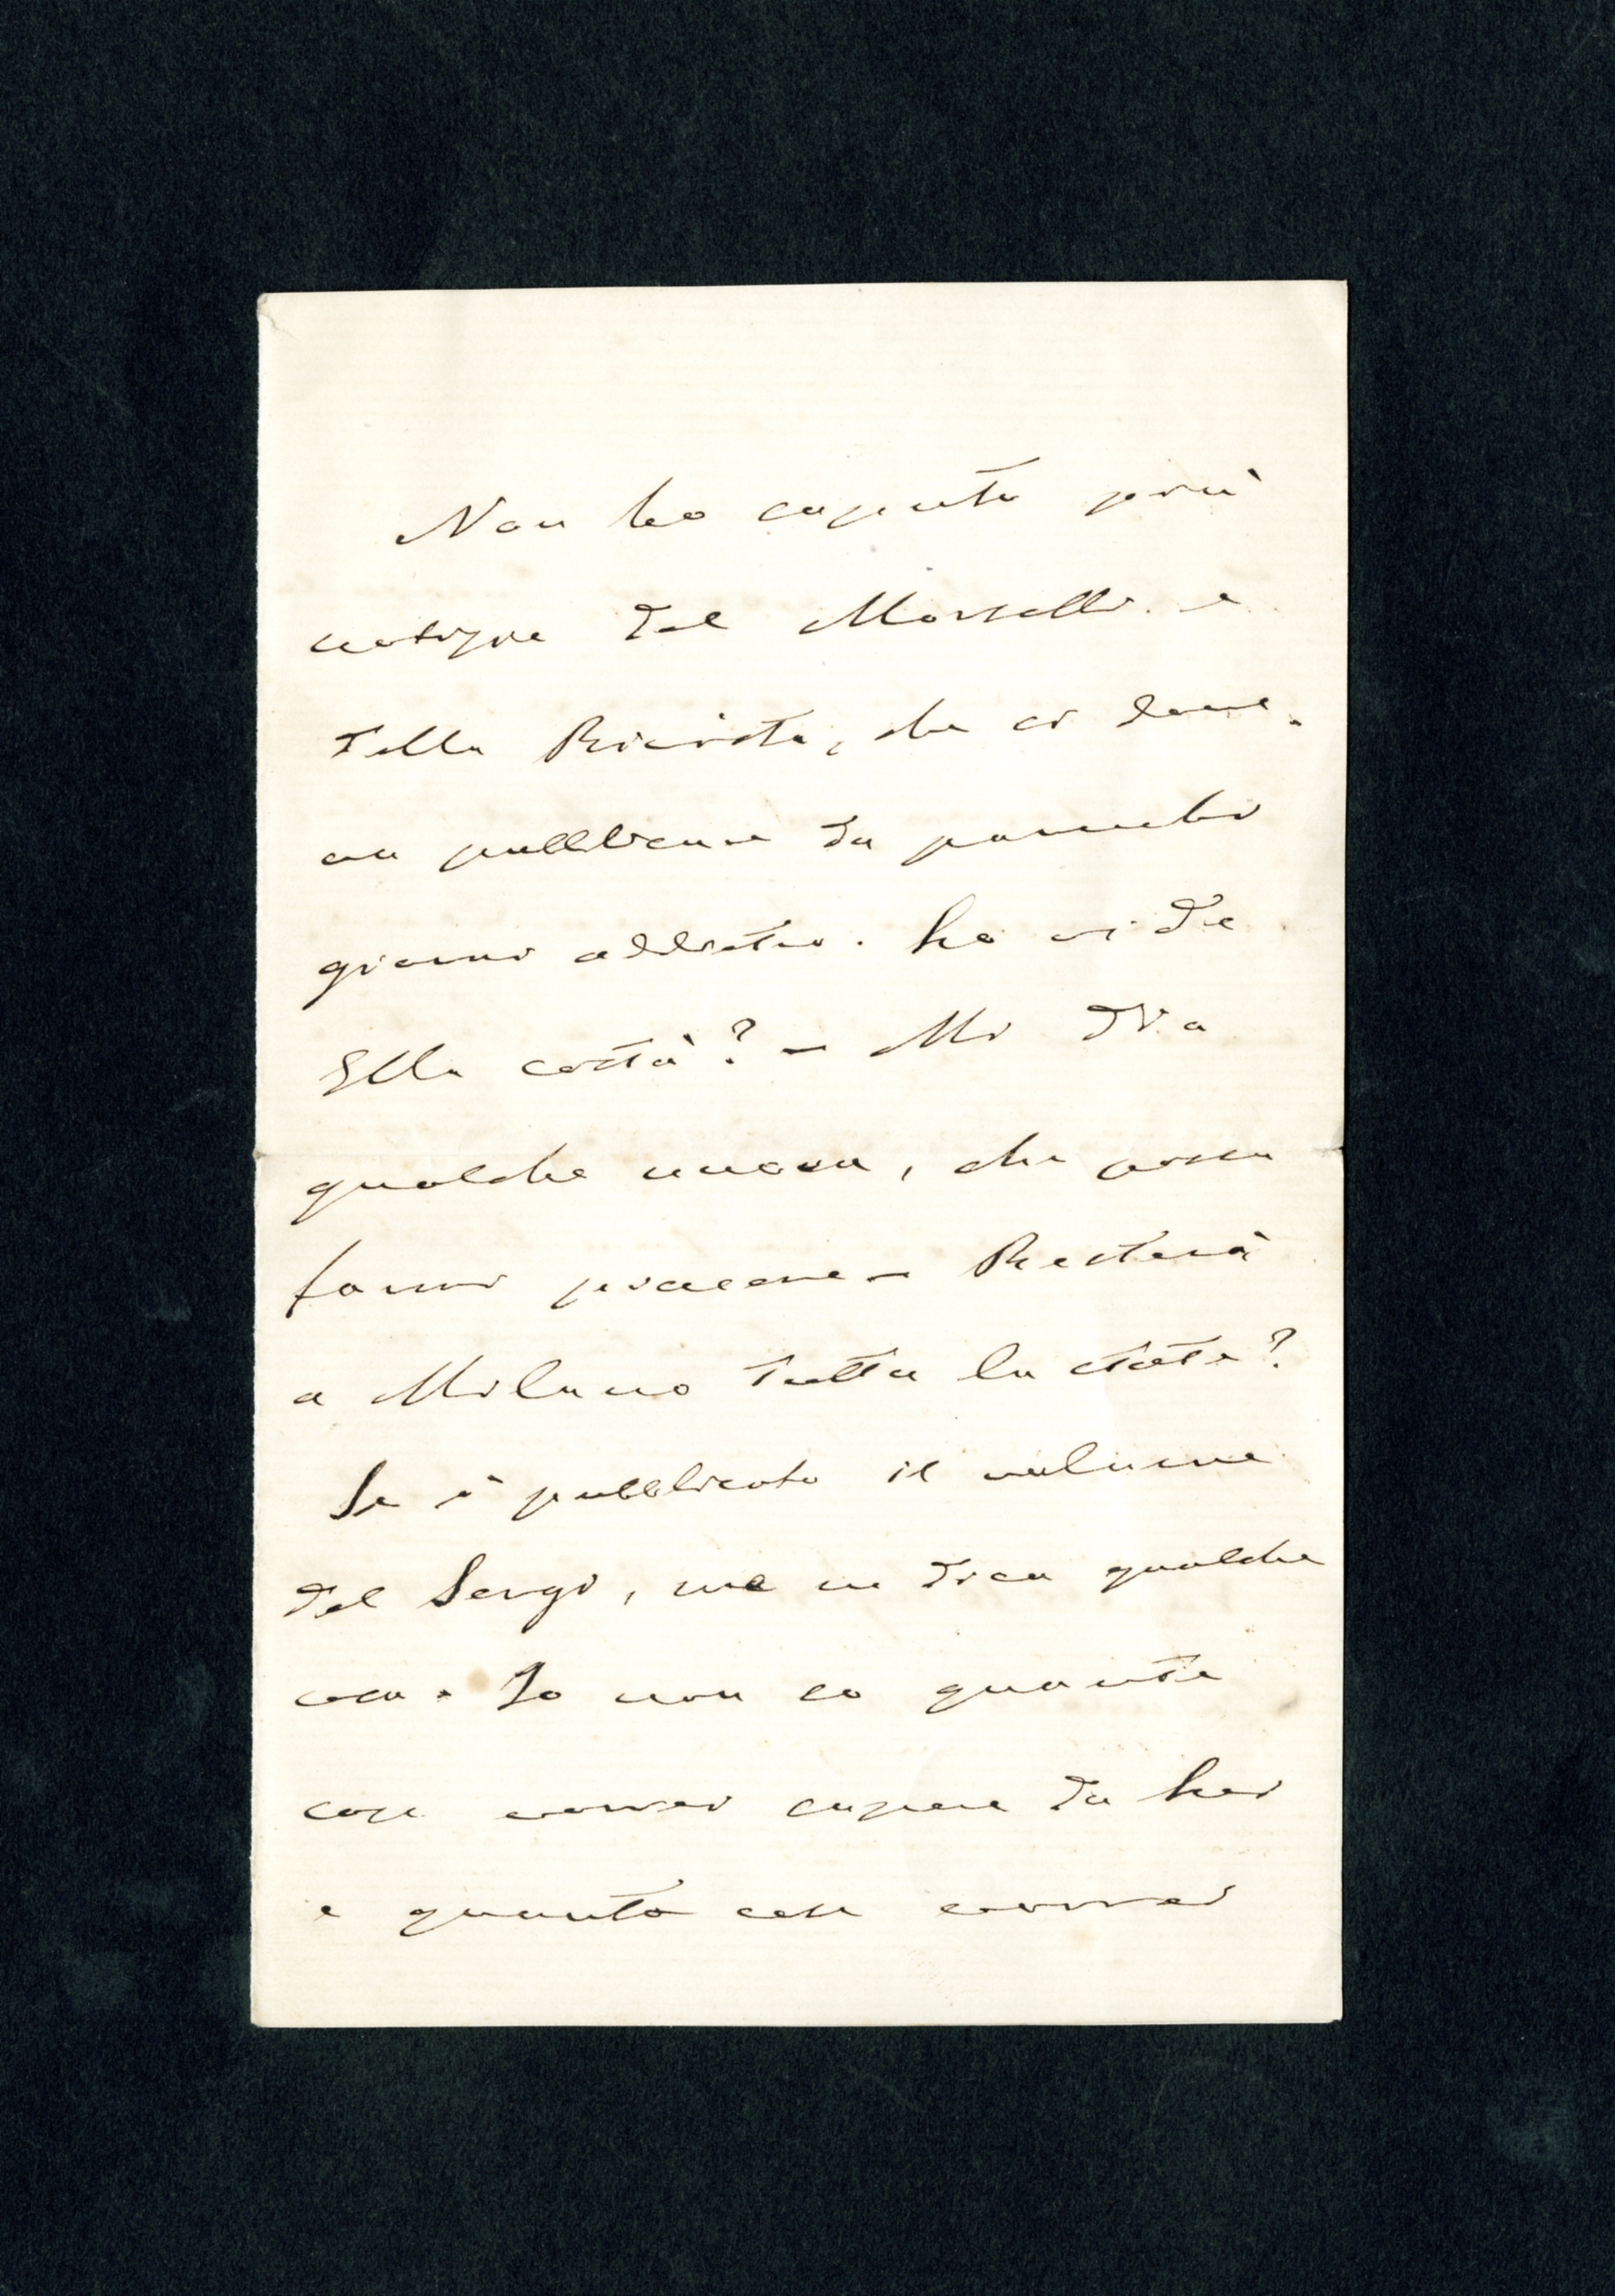 Non ho saputo più
notizie del Morselli e
della Rivista, che si dove-
va pubblicare da parecchi
giorni addietro. Lo vide
Ella costà? — Mi dia
qualche nuova, che possa
farmi piacere — Resterà
a Milano tutta la state?
Se è pubblicato il volume
del Sergi, me ne dica qualche
cosa. Io non so quante
cose vorrei sapere da Lei
e quante cose vorrei